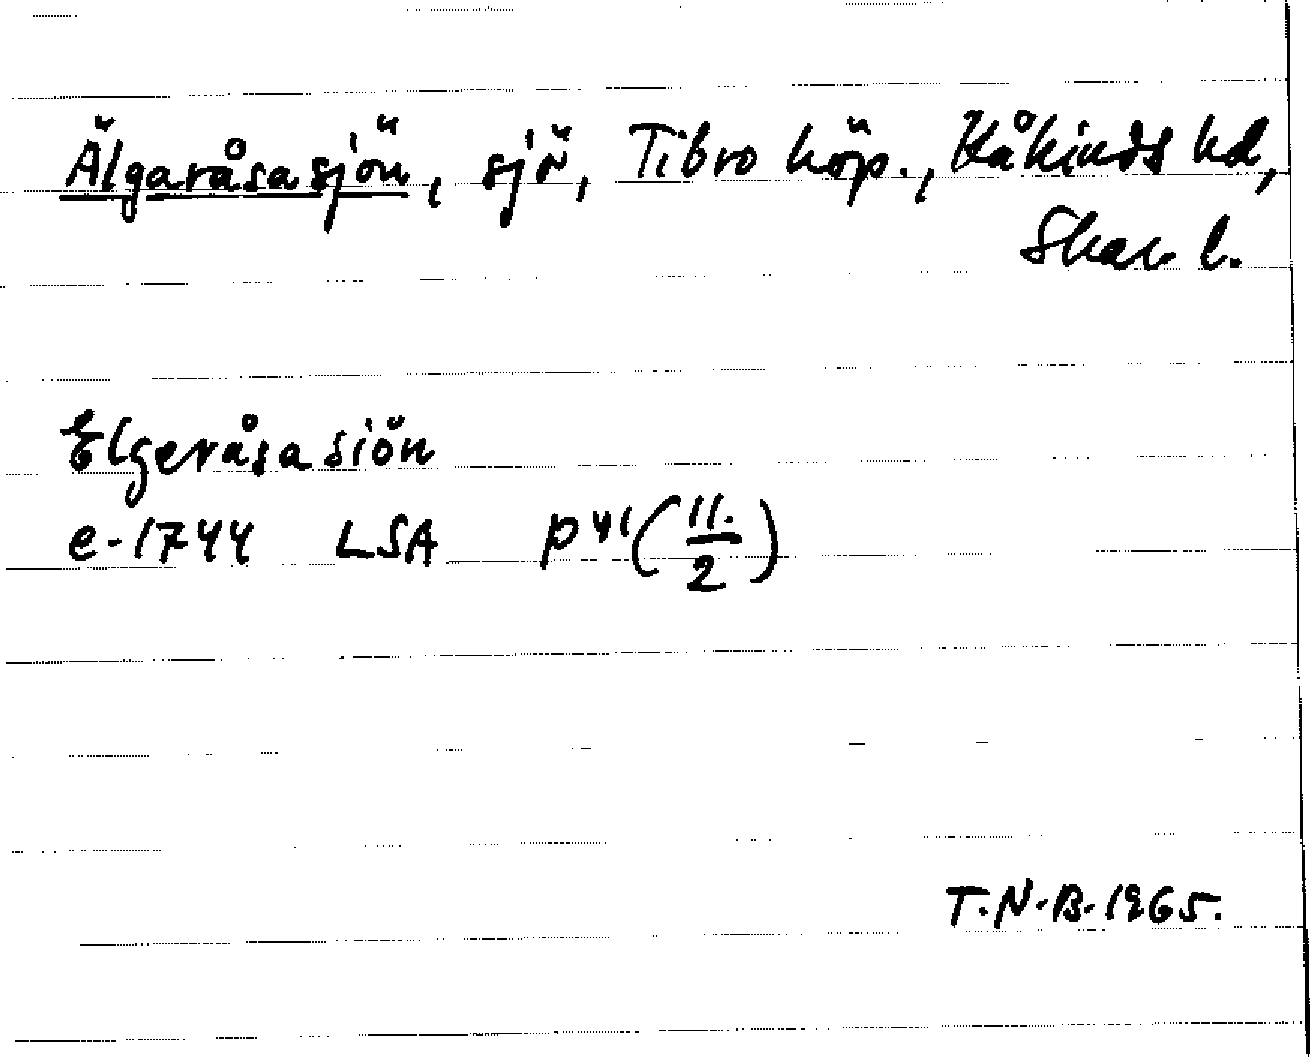 Älgaråsasjön, sjö, Tibro köp., Kåkinds hd,
Skar. l.
Elgeråsasiön
e. 1744 LSA P 41 (11./2)
T.N-B. 1965.